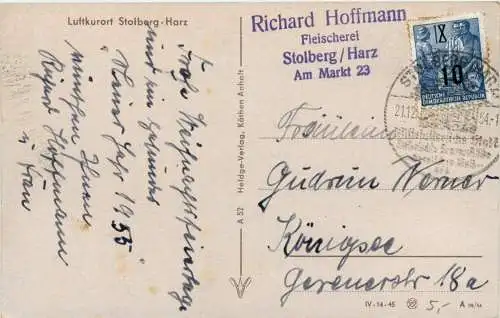 Luftkurort Stolberg-Harz
Frohe Weihnachtsfeiertage
und ein gesundes
"Neues Jahr 1955"
wünschen Ihnen
Richard Hoffmann
u Frau
Heldge-Verlag, Köthen Anhalt
A 52
Richard Hoffmann
Fleischerei
Stolberg/Harz
Am Markt 23
10
DEUTSCHE
DEMOKRATISCHE REPUBLIK
STOLBERG
21.12.54-1
Fräulein
Gudrun Werner
Königsee
Gerenerstr 18a
IV-14-45
5,-
A